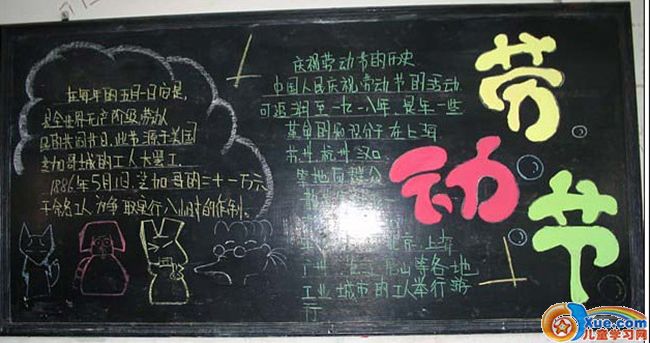 在每年的五月一日
是全世界无产阶级劳动人
民的共同节日,此节源于美国
芝加哥城的工人大罢工.
1886年5月1日,芝加哥的二十一万六
千余名工人为争取实行八小时的作制.
庆祝劳动节的历史
中国人民庆祝劳动节的活动
可追溯至一九一八年.是年一些
革命的知识分子在上海
苏州.杭州.汉口
等地向群众
北京.上海
广州 山等各地
工业城市的工人举行游
行
劳动节
Xue.com
儿童学习网